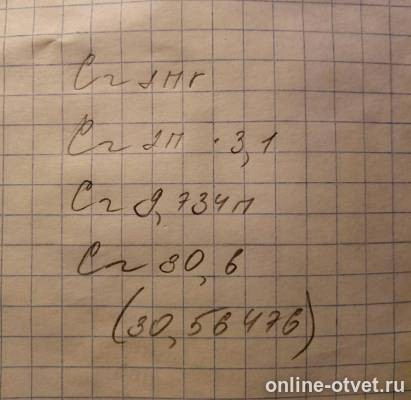 C~2πr
C~2π · 3,1
C~9,734π
C~30,6
(30,56476)
online-otvet.ru